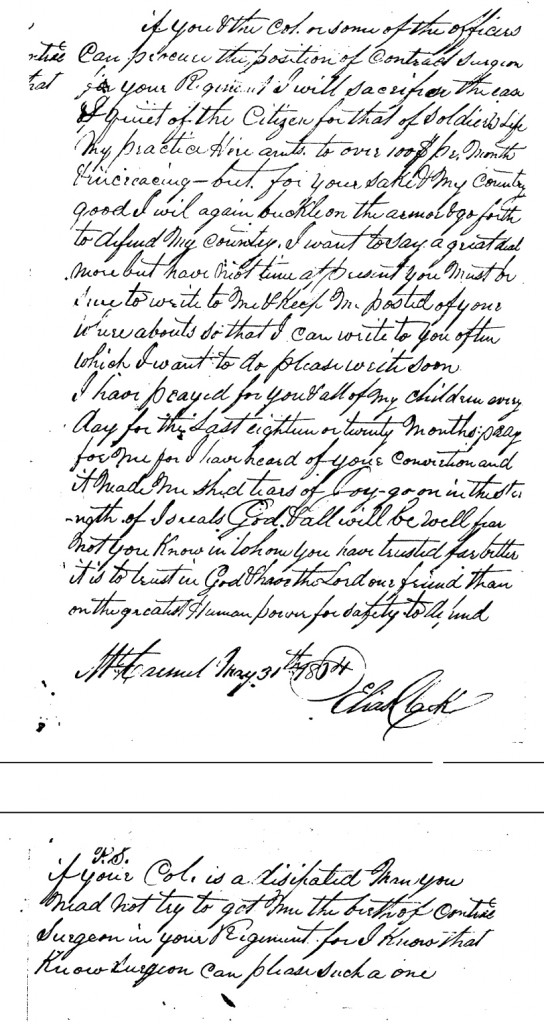 if you & the Col. or some of the officers
Can procure the position of Contract Surgeon
for your Regiment I will sacrifise the ease
& quiet of the Citizen for that of Soldiers Life
My practice Here amts. to over 100$ pr. Month
& increacing – but for your sake & My Country
good I wil again buckle on the armor & go forth
to defend My country. I want to say a great deal
more but have Not time at present you Must be
sure to write to Me & Keep Me posted of your
where abouts so that I can write to you often
which I want to do please write soon
I have prayed for you & all of My children every
day for the Last eighteen or twenty Months: pray
for Me for I have heard of your Conviction and
it Made Me shed tears of Joy – go on in the stre
-ngth of Isreals God & all will be well fear
Not you Know in whom you have trusted far better
it is to trust in God & have the Lord our friend than
on the greatest Human power for safety to defend
Mt Carmel May 31th 1864
Elias Clark
ntrac
hat
P.S.
if your Col. is a disipated Man you
Nead Not try to get Me the birth of Contrac
Surgeon in your Regiment for I Know that
Know Surgeon Can please such a one